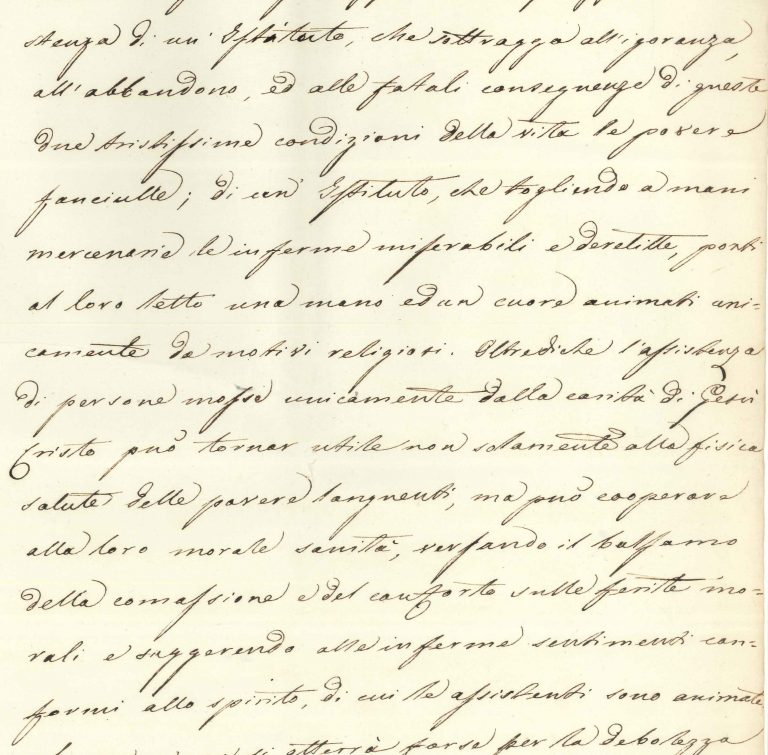 stenza di un' Istituto, che sottragga all'igoranza,
all'abbandono, ed alle fatali conseguenze di queste
due tristissime condizioni della vita le povere
fanciulle; di un' Istituto, che togliendo a mani
mercenarie le inferme miserabili e derelitte, ponti
al loro letto una mano ed un cuore animati uni-
camente da motivi religiosi. Oltrediche l'assistenza
di persone mosse unicamente dalla carità di Gesù
Cristo può tornar utile non solamente alla fisica
salute delle povere languenti, ma può cooperare
alla loro morale sanità, versando il balsamo
della comassione e del conforto sulle ferite mo-
rali e suggerendo alle inferme sentimenti con-
formi allo spirito, di cui le assistenti sono animate
si atterrà forse per la debolezza